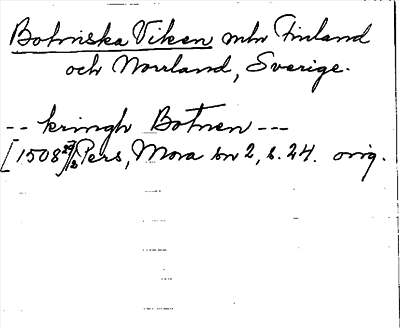 Botniska Viken mln Finland
och Norrland, Sverige.
-- kringh Botnen ---
[1508 29/12 Pers, Mora sn 2, s. 24. orig.